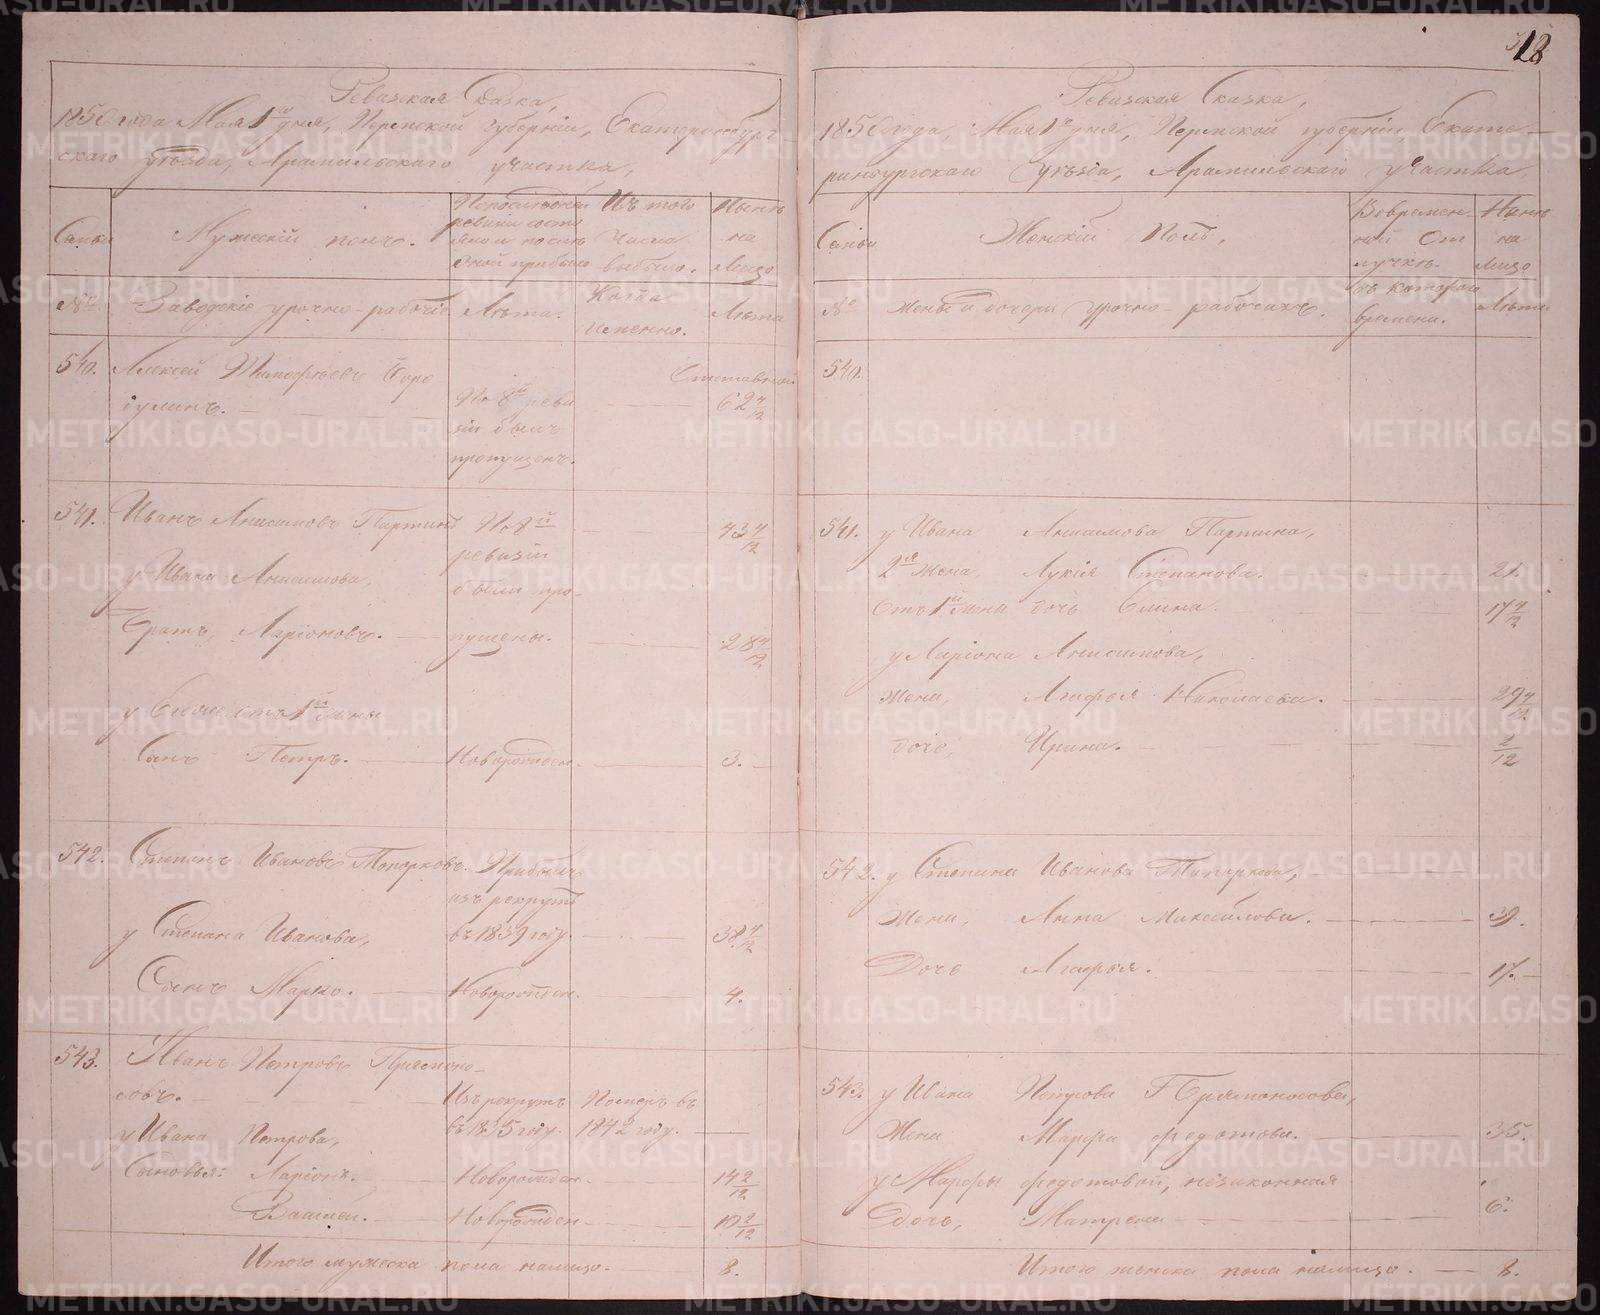 18
Ревизская Сказка,
1850 года Мая 1го дня, Пермской губерніи, Екатеринбург-
скаго уѣзда, Арамильскаго участка,
Семьи
Мужескій полъ.
По последней
ревизіи состо
яло и послѣ
оной прибыло
Изъ того
числа
выбыло.
Нынѣ
на
лицо
№
Заводскіе урочно-рабочіе
Лѣта.
Когда
именно.
Лѣта
540. Алексей Тимофѣевъ Боро
дулинъ.
По 8й реви
зіи былъ
пропущенъ.
Отставной
62 4/12
541. Иванъ Анисимовъ Паршинъ
По 8й
ревизіи
были про-
пущены.
43 4/12
у Ивана Анисимова,
Братъ, Ларіоновъ. 28 4/12
у отъ 1й жены
Сынъ Петръ. Новорожден. 3.
542. Степанъ Ивановъ Топорковъ.
Прибылъ
изъ рекрутъ
въ 1839 году.
38 4/12
у Степана Иванова,
Сынъ Марко. Новорожден. 4.
543. Иванъ Петровъ Прямоно-
совъ.
Изъ рекрутъ
въ 1835 году.
Померъ въ
1842 году.
у Ивана Петрова,
Сыновья: Ларіонъ. Новорожден. 14 2/12
Василей. Новорожден. 10 2/12
Итого мужеска пола налицо. 8.
Ревизская Сказка,
1850 года, Мая 1го дня, Пермской губерніи Екате-
ринбургскаго уѣзда, Арамильскаго участка,
Семьи
Женскій полъ,
Вовремен-
ной от
лучкѣ.
Нынѣ
на
лицо
№
Жены и дочери урочно-рабочихъ.
съ котораго
времени.
Лѣта
540.
541. у Ивана Анисимова Паршина,
2я жена, Лукія Степанова. 21.
Отъ 1й жены дочь Елина. 17 4/12
у Ларіона Анисимова,
жена, Агафья Николаева. 29 4/12
дочь, Ирина. 2/12
542. у Степана Иванова Топоркова,
Жена, Анна Михайлова. 39.
Дочь Агафья. 17.
543. у Ивана Петрова Прямоносова,
Жена Марфа Федотова. 35.
у Марфы Федотовой, незаконная
Дочь, Матрена 6.
Итого женска пола налицо. 8.
METRIKI.GASO-URAL.RU